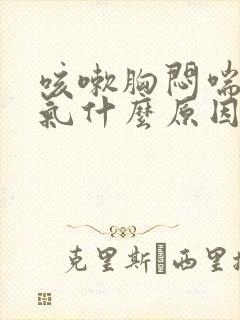 咳嗽胸悶喘
氣什麼原因
克里斯·西里